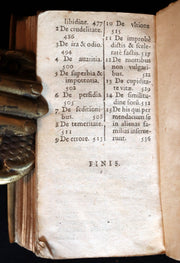 libidine. 477
2 De crudelitate.
436
3 De ira & odio.
494
4 De auaritia.
500
5 De superbia &
impotentia.
502
6 De perfidia.
505
7 De seditioni-
bus. 508
8 De temeritate.
511
9 De errore. 513
10 De vltione
515
11 De improbè
dictis & scele-
ratè factis. 517
12 De mortibus
non vulgari-
bus.
13 De cupidita-
te vitæ. 529
14 De similitu-
dine formæ. 531
15 De his qui per
mendacium se
in alienas fa-
milias inserue-
runt. 536
FINIS.